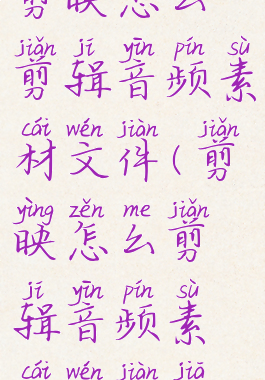 剪映怎么
jiǎn jí yīn pín sù
剪辑音频素
cái wén jiàn jiǎn
材文件(剪
yìng zěn me jiǎn
映怎么剪
jí yīn pín sù
辑音频素
cái wén jiàn jiā